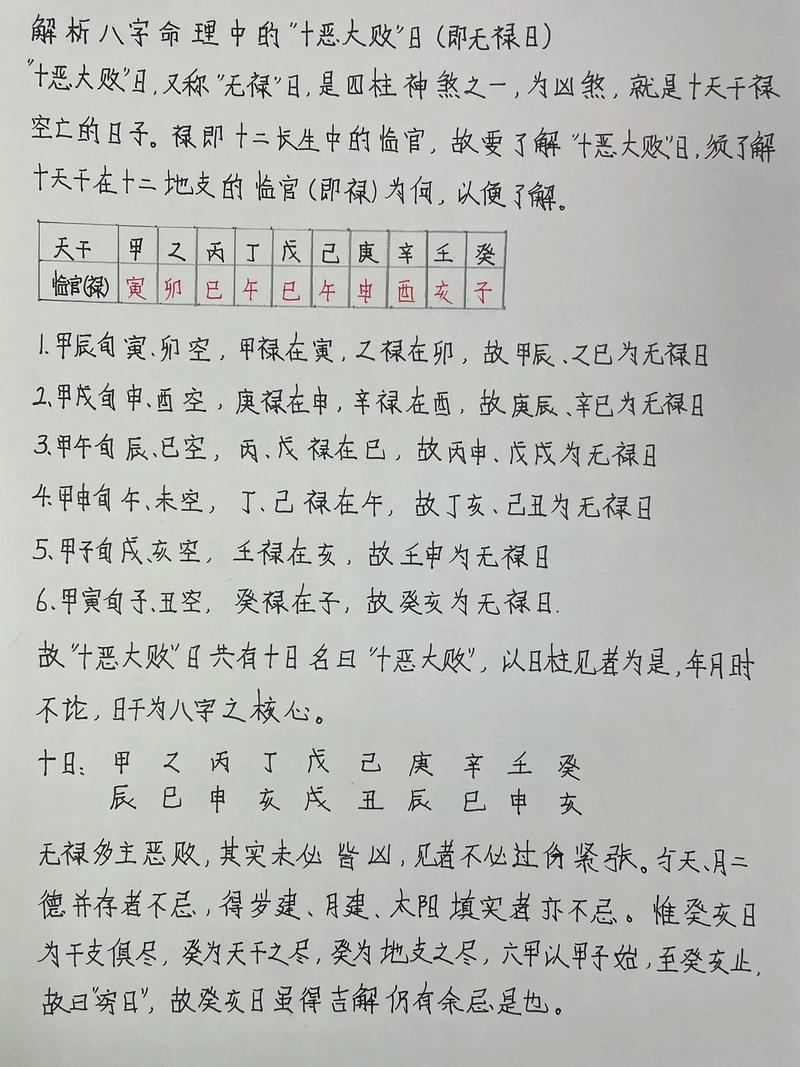 解析八字命理中的"十恶大败"日(即无禄日)
"十恶大败"日,又称"无禄"日,是四柱神煞之一,为凶煞,就是十天干禄
空亡的日子。禄即十二长生中的临官,故要了解"十恶大败"日,须了解
十天干在十二地支的临官(即禄)为何,以便了解。
天干 甲 乙 丙 丁 戊 己 庚 辛 壬 癸
临官(禄) 寅 卯 巳 午 巳 午 申 酉 亥 子
1.甲辰旬寅、卯空,甲禄在寅,乙禄在卯,故甲辰、乙巳为无禄日
2.甲戌旬申、酉空,庚禄在申,辛禄在酉,故庚辰、辛巳为无禄日
3.甲午旬辰、巳空,丙、戊禄在巳,故丙申、戊戌为无禄日
4.甲申旬午、未空,丁、己禄在午,故丁亥、己丑为无禄日
5.甲子旬戌、亥空,壬禄在亥,故壬申为无禄日
6.甲寅旬子、丑空,癸禄在子,故癸亥为无禄日.
故"十恶大败"日共有十日名曰"十恶大败",以日柱见者为是,年月时
不论,日干为八字之核心。
十日: 甲 乙 丙 丁 戊 己 庚 辛 壬 癸
辰 巳 申 亥 戌 丑 辰 巳 申 亥
无禄多主恶败,其实未必皆凶,见者不必过份紧张。与天、月二
德并存者不忌,得岁建、月建、太阳填实者亦不忌。惟癸亥日
为干支俱尽,癸为天干之尽,癸为地支之尽,六甲以甲子始,至癸亥止,
故曰"穷日",故癸亥日虽得吉解仍有余忌是也。